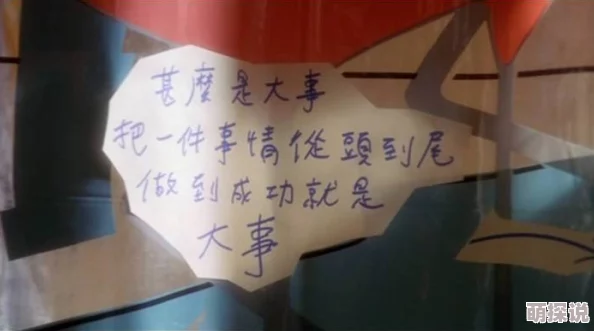 甚麼是大事
把一件事情從頭到尾
做到成功就是
大事
萌探说